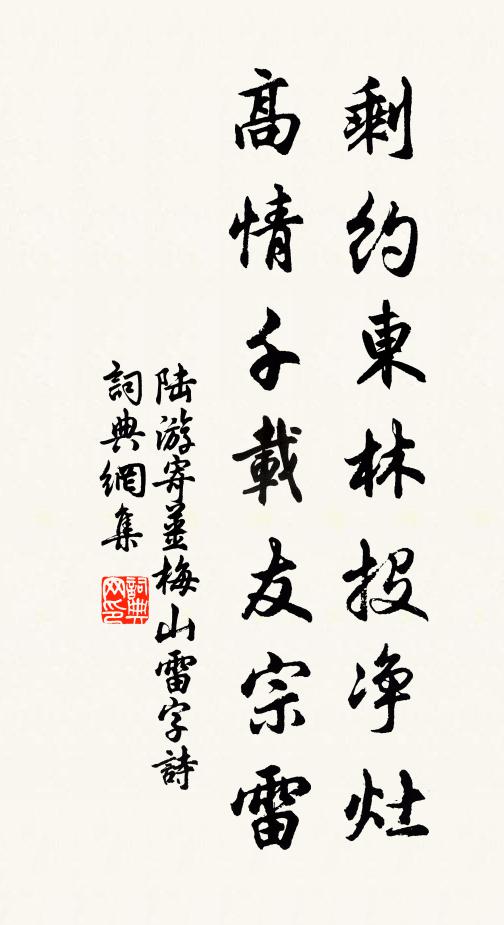 剩約東林投净社
高情千載友宗雷
陸游寄薑梅山雷字詩
詞典網集
詞典
网印